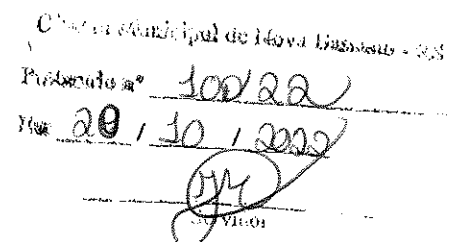 Câmara Municipal de Nova Bassano - RS
Protocolo nº 100/22
Em 20 / 10 / 2022
Servidor